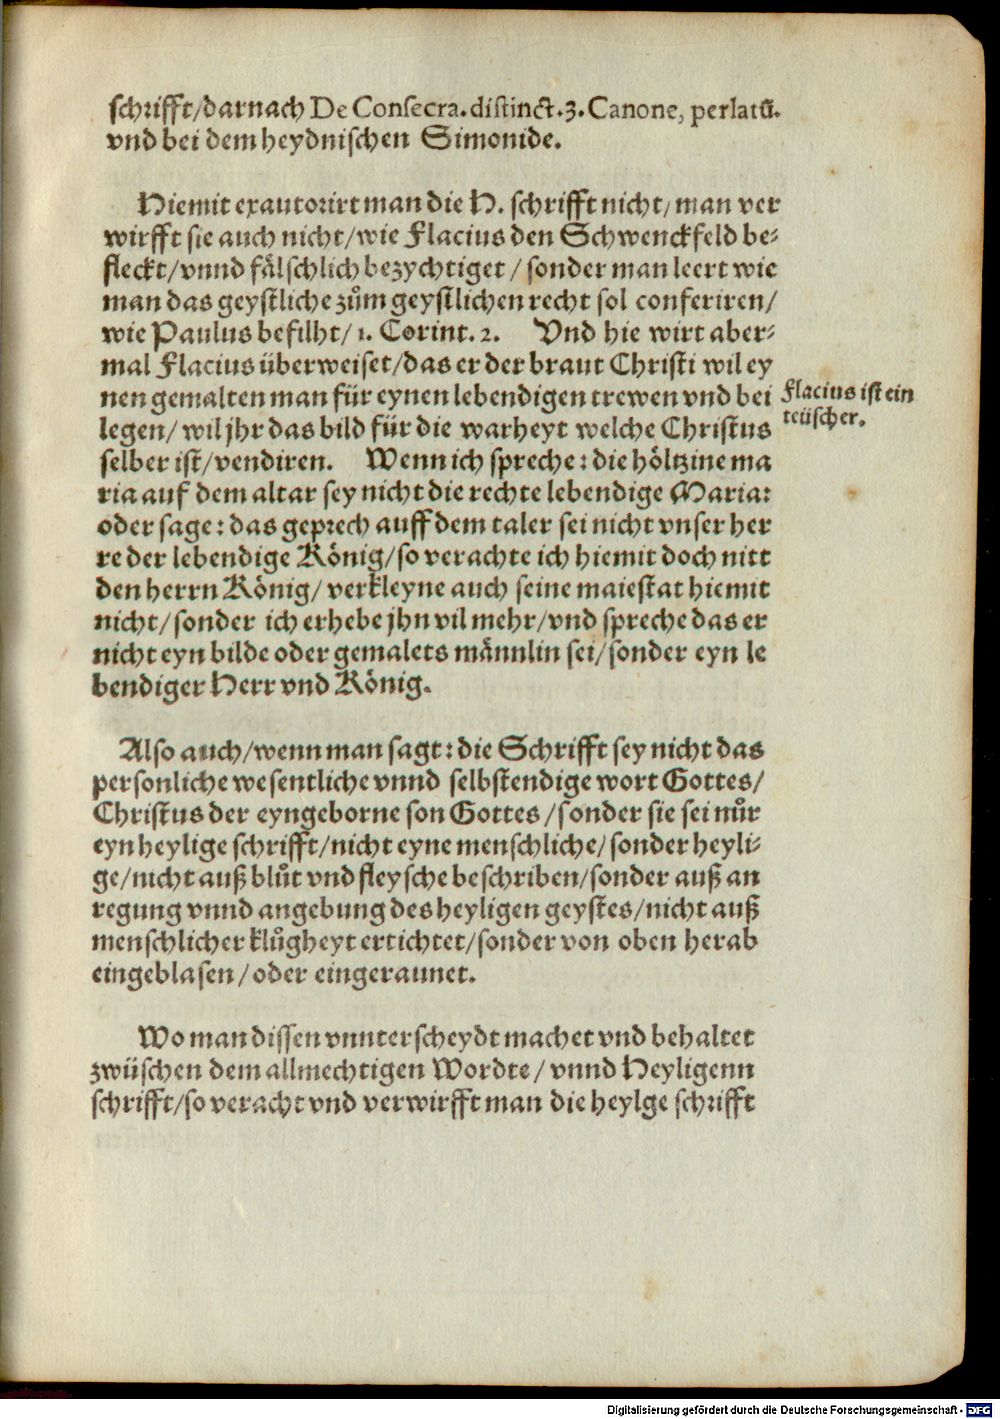 schrifft/darnach De Consecra. distinct. 3. Canone, perlatū.
vnd bei dem heydnischen Simonide.
Hiemit exautorirt man die H. schrifft nicht/ man ver
wirfft sie auch nicht/wie Flacius den Schwenckfeld be⸗
fleckt/vnnd fälschlich bezychtiget / sonder man leert wie
man das geystliche zům geystlichen recht sol conferiren/
wie Paulus befilht/ 1. Corint. 2. Vnd hie wirt aber⸗
mal Flacius überweiset/das er der braut Christi wil ey
nen gemalten man für eynen lebendigen trewen vnd bei
legen/ wil jhr das bild für die warheyt welche Christus
selber ist/vendiren. Wenn ich spreche: die höltzine ma
ria auf dem altar sey nicht die rechte lebendige Maria:
oder sage: das geprech auff dem taler sei nicht vnser her
re der lebendige König/so verachte ich hiemit doch nitt
den herrn König/ verkleyne auch seine maiestat hiemit
nicht/sonder ich erhebe jhn vil mehr/vnd spreche das er
nicht eyn bilde oder gemalets männlin sei/sonder eyn le
bendiger Herr vnd König.
Flacius ist ein
teüscher.
Also auch/wenn man sagt: die Schrifft sey nicht das
personliche wesentliche vnnd selbstendige wort Gottes/
Christus der eyngeborne son Gottes /sonder sie sei nůr
eyn heylige schrifft/nicht eyne menschliche/sonder heyli⸗
ge/nicht auß blůt vnd fleysche beschriben/sonder auß an
regung vnnd angebung des heyligen geystes/nicht auß
menschlicher klůgheyt ertichtet/sonder von oben herab
eingeblasen/oder eingeraunet.
Wo man dissen vnnterscheydt machet vnd behaltet
zwüschen dem allmechtigen Wordte/ vnnd Heyligenn
schrifft/so veracht vnd verwirfft man die heylge schrifft
Digitalisierung gefördert durch die Deutsche Forschungsgemeinschaft - DFG